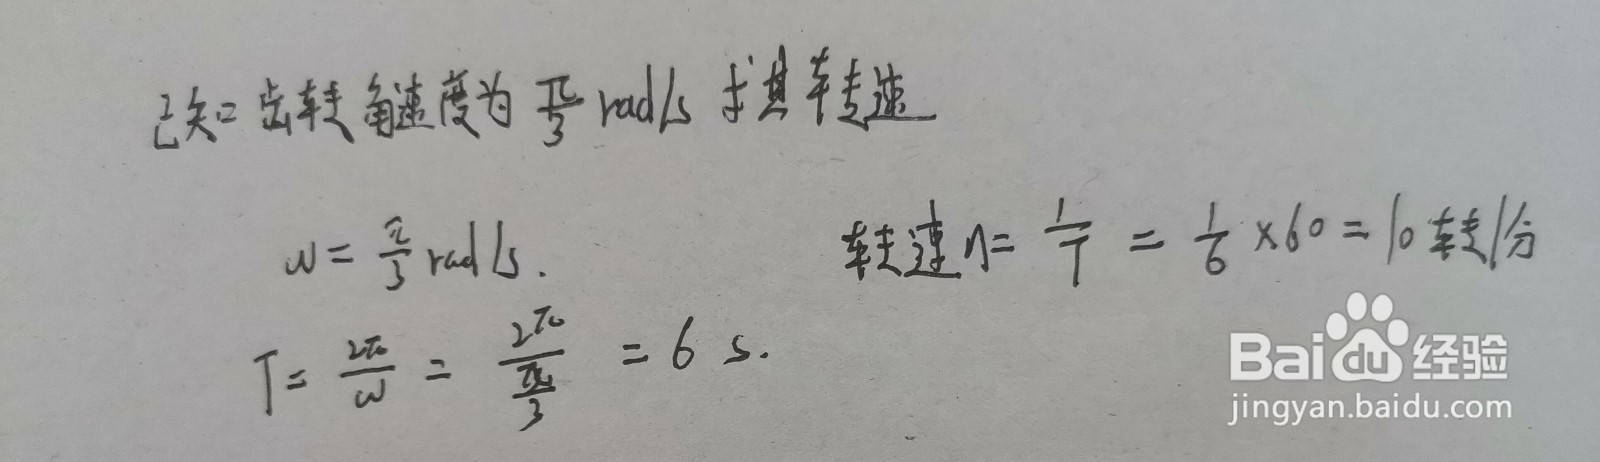 已知：齿转角速度为 π/3 rad/s 求其转速
ω = π/3 rad/s.
T = 2π/ω = 2π/(π/3) = 6 s.
转速 n = 1/T = 1/6 × 60 = 10 转/分
Baidu经验
jingyan.baidu.com